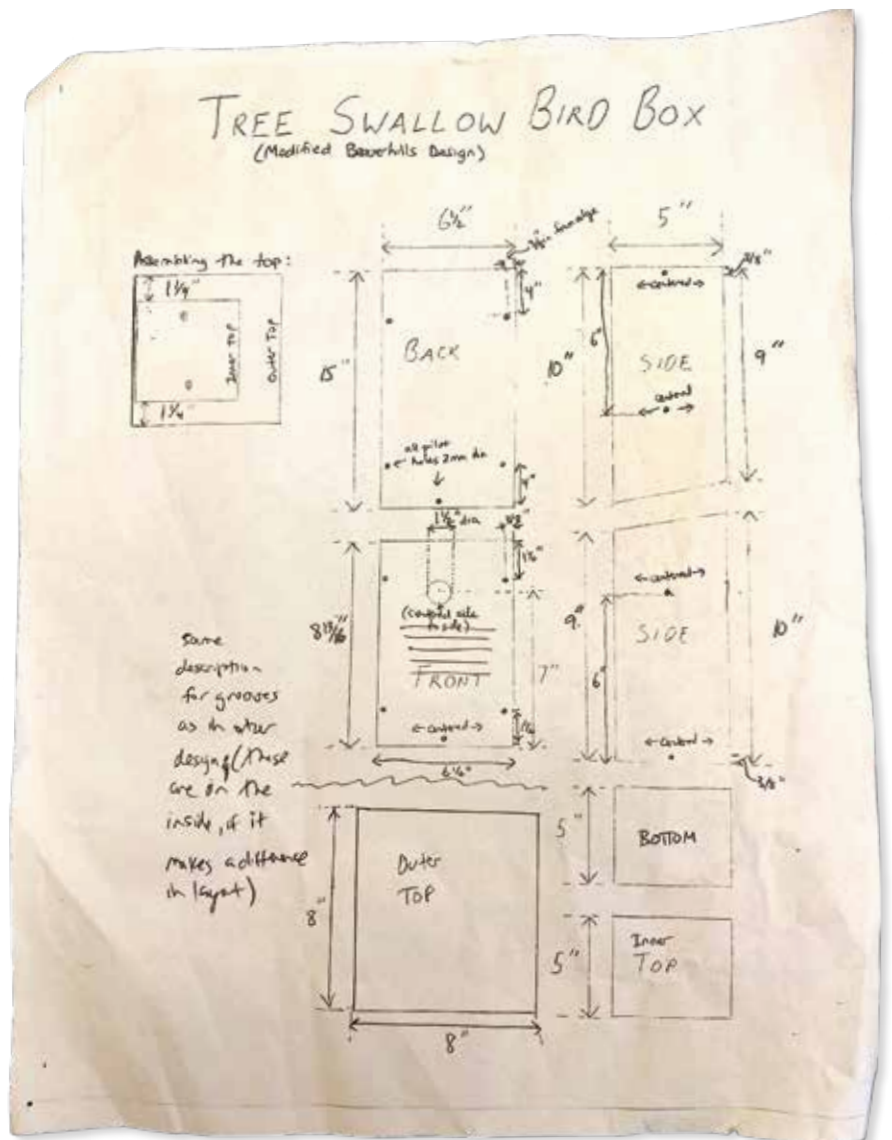 TREE SWALLOW BIRD BOX
(Modified Beaverhills Design)
Assembling the top:
1 1/4"
Inner TOP
Outer TOP
1 1/4"
6 1/2"
from edge
4"
BACK
15"
all pilot
holes 2mm dia
4"
5"
3/8"
←centered→
6"
10"
SIDE
9"
centered
1 1/2" dia
(centered side
to side)
8 13/16"
FRONT
7"
←centered→
6 1/2"
←centered→
9"
SIDE
10"
6"
←centered→
3/8"
same
description
for grooves
as in other
design (these
are on the
inside, if it
makes a difference
in layout)
Outer
TOP
8"
8"
5"
BOTTOM
5"
Inner
TOP